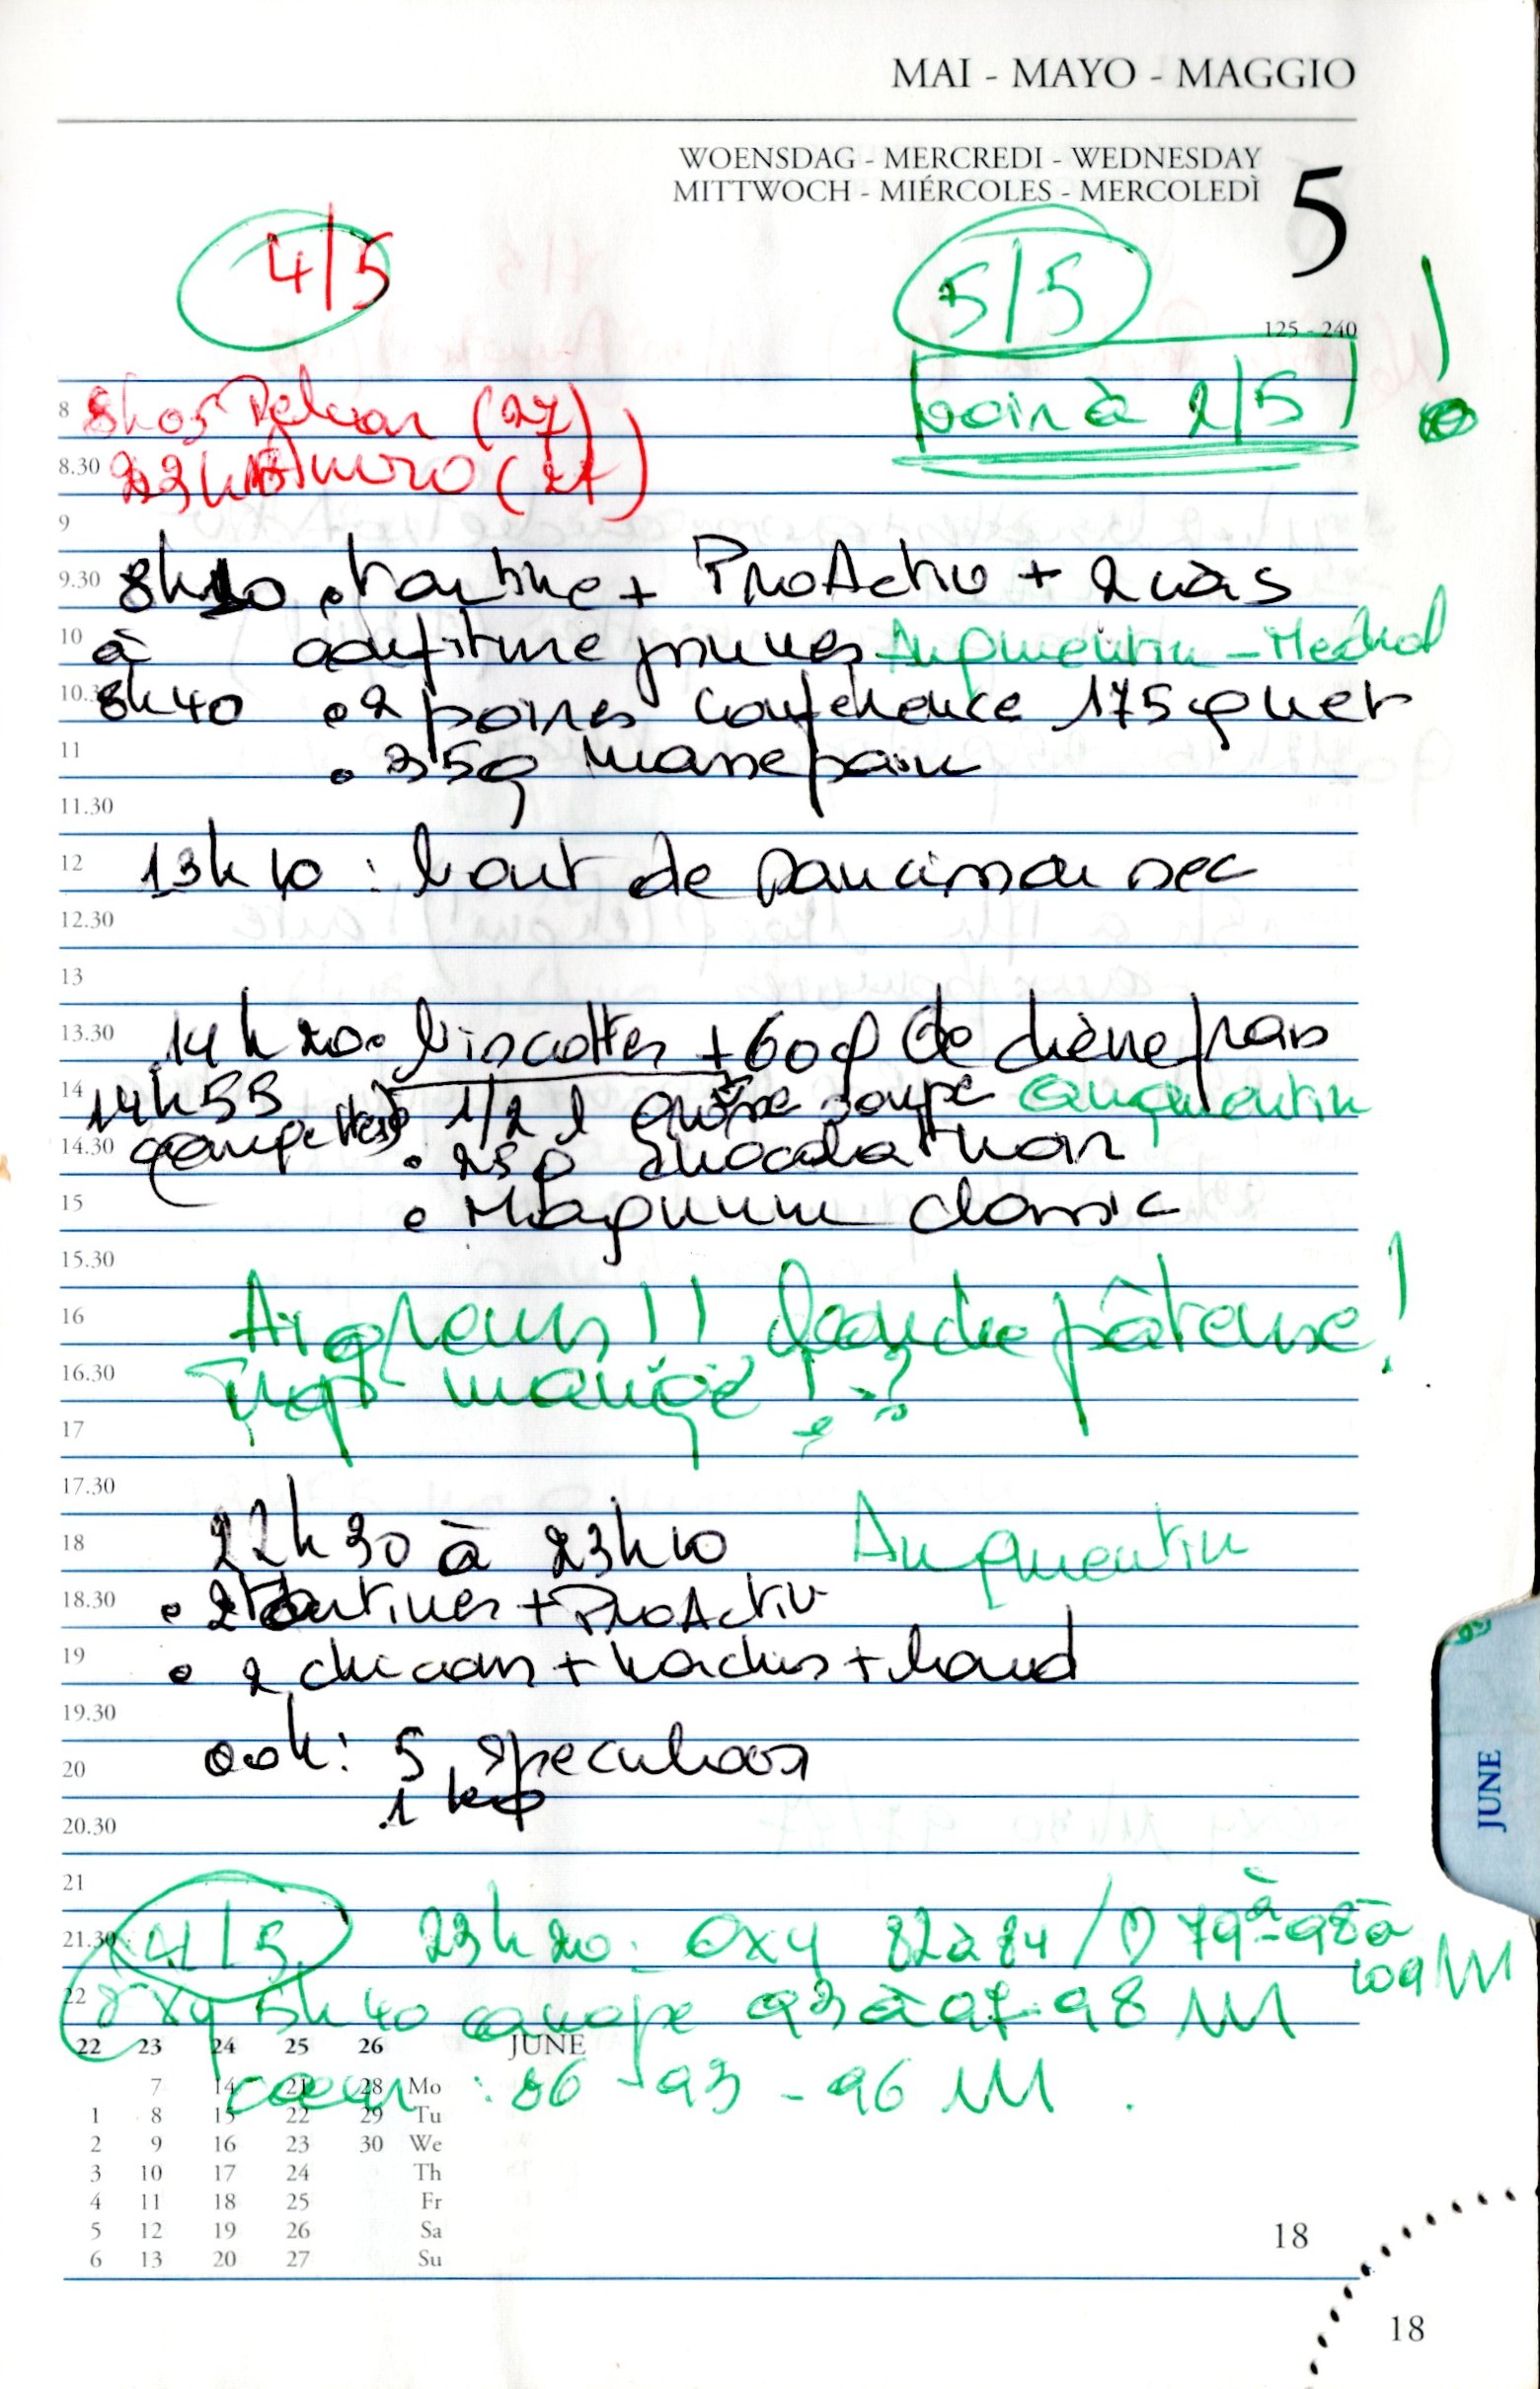 MAI - MAYO - MAGGIO
WOENSDAG - MERCREDI - WEDNESDAY
MITTWOCH - MIÉRCOLES - MERCOLEDÌ
5
4/5
5/5
125 - 240
!
voir à 2/5
8 8h05 (27)
8.30 (27)
9
9.30 8h10 . tartine + ProActiv + 2 càs
10 à confiture prunes Augmentin - Medrol
10.30 8h40 . 2 poires conférence 175g net
11 . 35g massepain
11.30
12 13h10 : bout de saucisson sec
12.30
13
13.30 14h20 . biscottes + 60g de chèvre frais
14 14h55 1/2 l soupe Augmentin
14.30 . 25g chocolat noir
15 . Magnum classic
15.30
16 Aigreurs !! bouche pâteuse !
16.30 Trop mangé !?
17
17.30
18 22h30 à 23h10 Augmentin
18.30 . 2 tartines + ProActiv
19 . 2 chicons + hachis + chaud
19.30
20 00h : 5 speculoos
1
20.30
21
21.30 4/5 23h20 . Oxy 82 à 84 / 79 à 98 à
109 !!!
22 Oxy 5h40 canapé 93 à 97 - 98 !!!
22 23 24 25 26 JUNE
7 14 21 28 Mo
coeur : 86 - 93 - 96 !!! .
1 8 15 22 29 Tu
2 9 16 23 30 We
3 10 17 24 Th
4 11 18 25 Fr
5 12 19 26 Sa
6 13 20 27 Su
18
18
JUNE